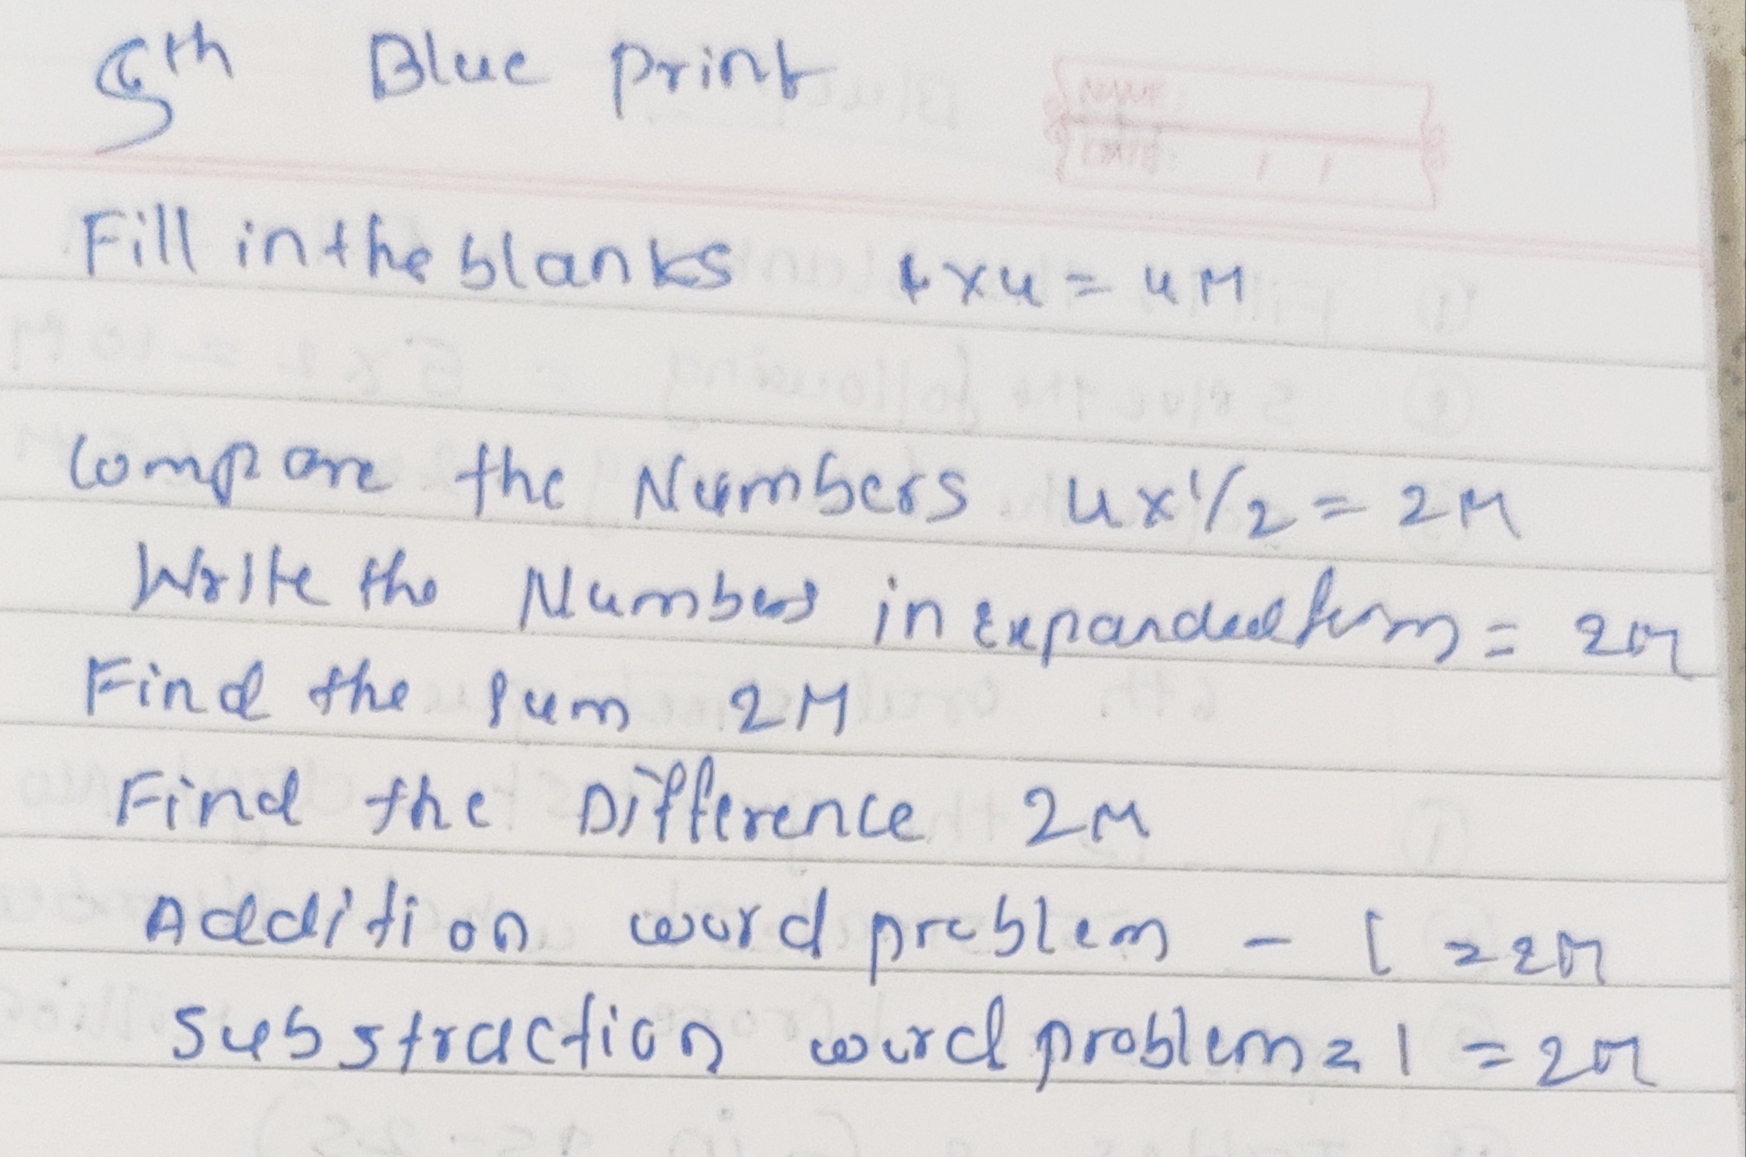 5th Blue print
Fill in the blanks 1x4 = 4M
Compare the Numbers 4x1/2 = 2M
Write the Numbers in Expanded form = 2M
Find the sum 2M
Find the Difference 2M
Addition word problem - 1 = 2M
Substraction word problem = 1 = 2M